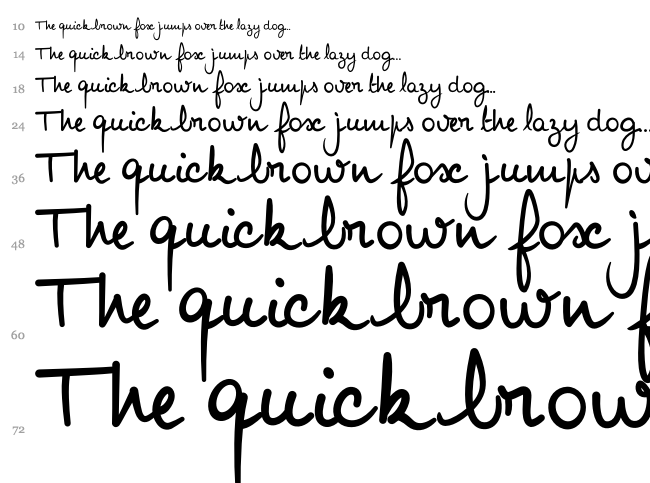 10 The quick brown fox jumps over the lazy dog...
14 The quick brown fox jumps over the lazy dog...
18 The quick brown fox jumps over the lazy dog...
24 The quick brown fox jumps over the lazy dog...
36 The quick brown fox jumps ov
48 The quick brown fox j
60 The quick brown f
72 The quick brow